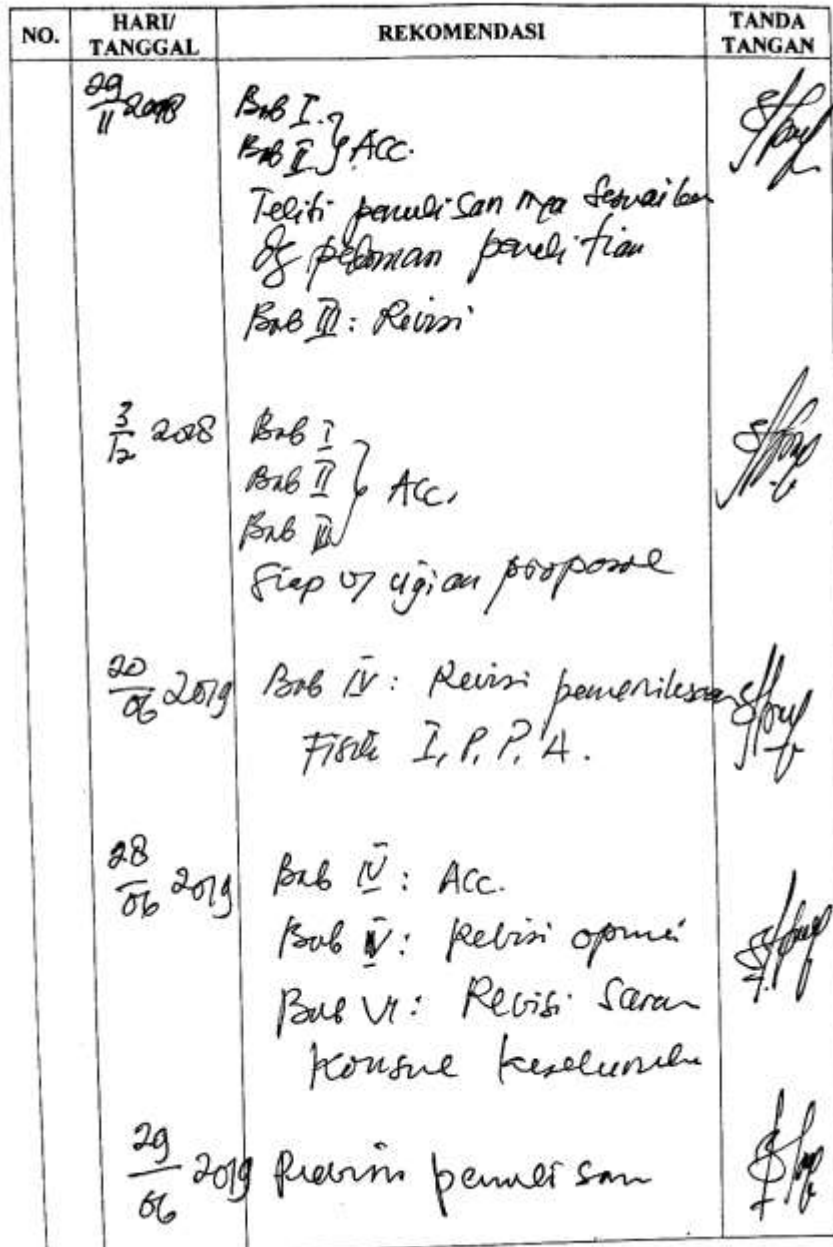 NO. HARI/ TANGGAL REKOMENDASI TANDA TANGAN
29/11 2018 Bab I.
Bab II } Acc.
Teliti penulisan nya Sesuaikan
dg pedoman penelitian
Bab III: Revisi
3/12 2018 Bab I
Bab II } Acc.
Bab III
Siap u/ ujian proposal
20/06 2019 Bab IV: Revisi pemeriksaan
Fisik I, P, P, A.
28/06 2019 Bab IV: Acc.
Bab V: Revisi opini
Bab VI: Revisi Saran
Konsul keseluruhan
29/06 2019 Revisi penulisan